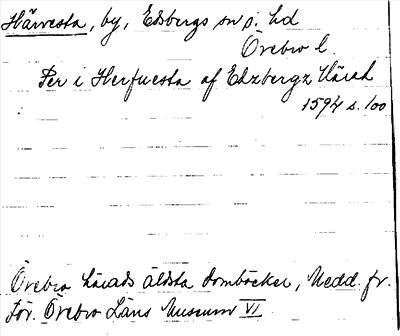 Härvesta, by, Edsbergs sn o. hd
Örebro l.
Per i Herfuesta af Edzbergz Härad
1594 s. 100
Örebro härads äldsta domböcker, Medd. fr.
För. Örebro Läns Museum VI.